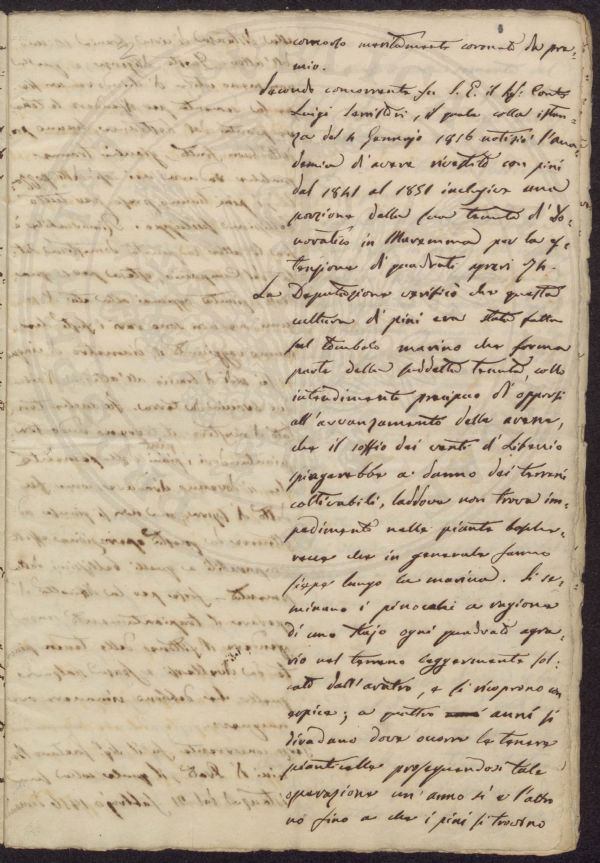 coronato meritamente coronato di pre-
mio.
Secondo concorrente fu S. E. il Sig. Conte
Luigi Serristori, il quale colla istan-
za del 4 Gennajo 1856 notiziò l'Acca-
demia d'avere rivestito con pini
dal 1841 al 1851 inclusive una
porzione della sua tenuta di Do-
noratico in Maremma per la es-
tensione di quadrati agrari 74.
La Deputazione verificò che questa
cultura di pini era stata fatta
sul tombolo marino che forma
parte della suddetta tenuta, collo
intendimento precipuo di opporsi
all'avvanzamento delle arene,
che il soffio dei venti di Libeccio
spingerebbe a danno dei terreni
coltivabili, laddove non trova im-
pedimento nelle piante
che in generale fanno
siepe lungo la marina. Si se-
minano i pinocchi a ragione
di uno stajo ogni quadrato agra-
rio nel terreno leggermente sol-
cato dall'aratro, e si ricoprono con
erpice; a quattro anni si
diradano dove occorre le tenere
pianticelle proseguendosi tale
operazione un'anno sì e l'altro
nò fino a che i pini si trovino